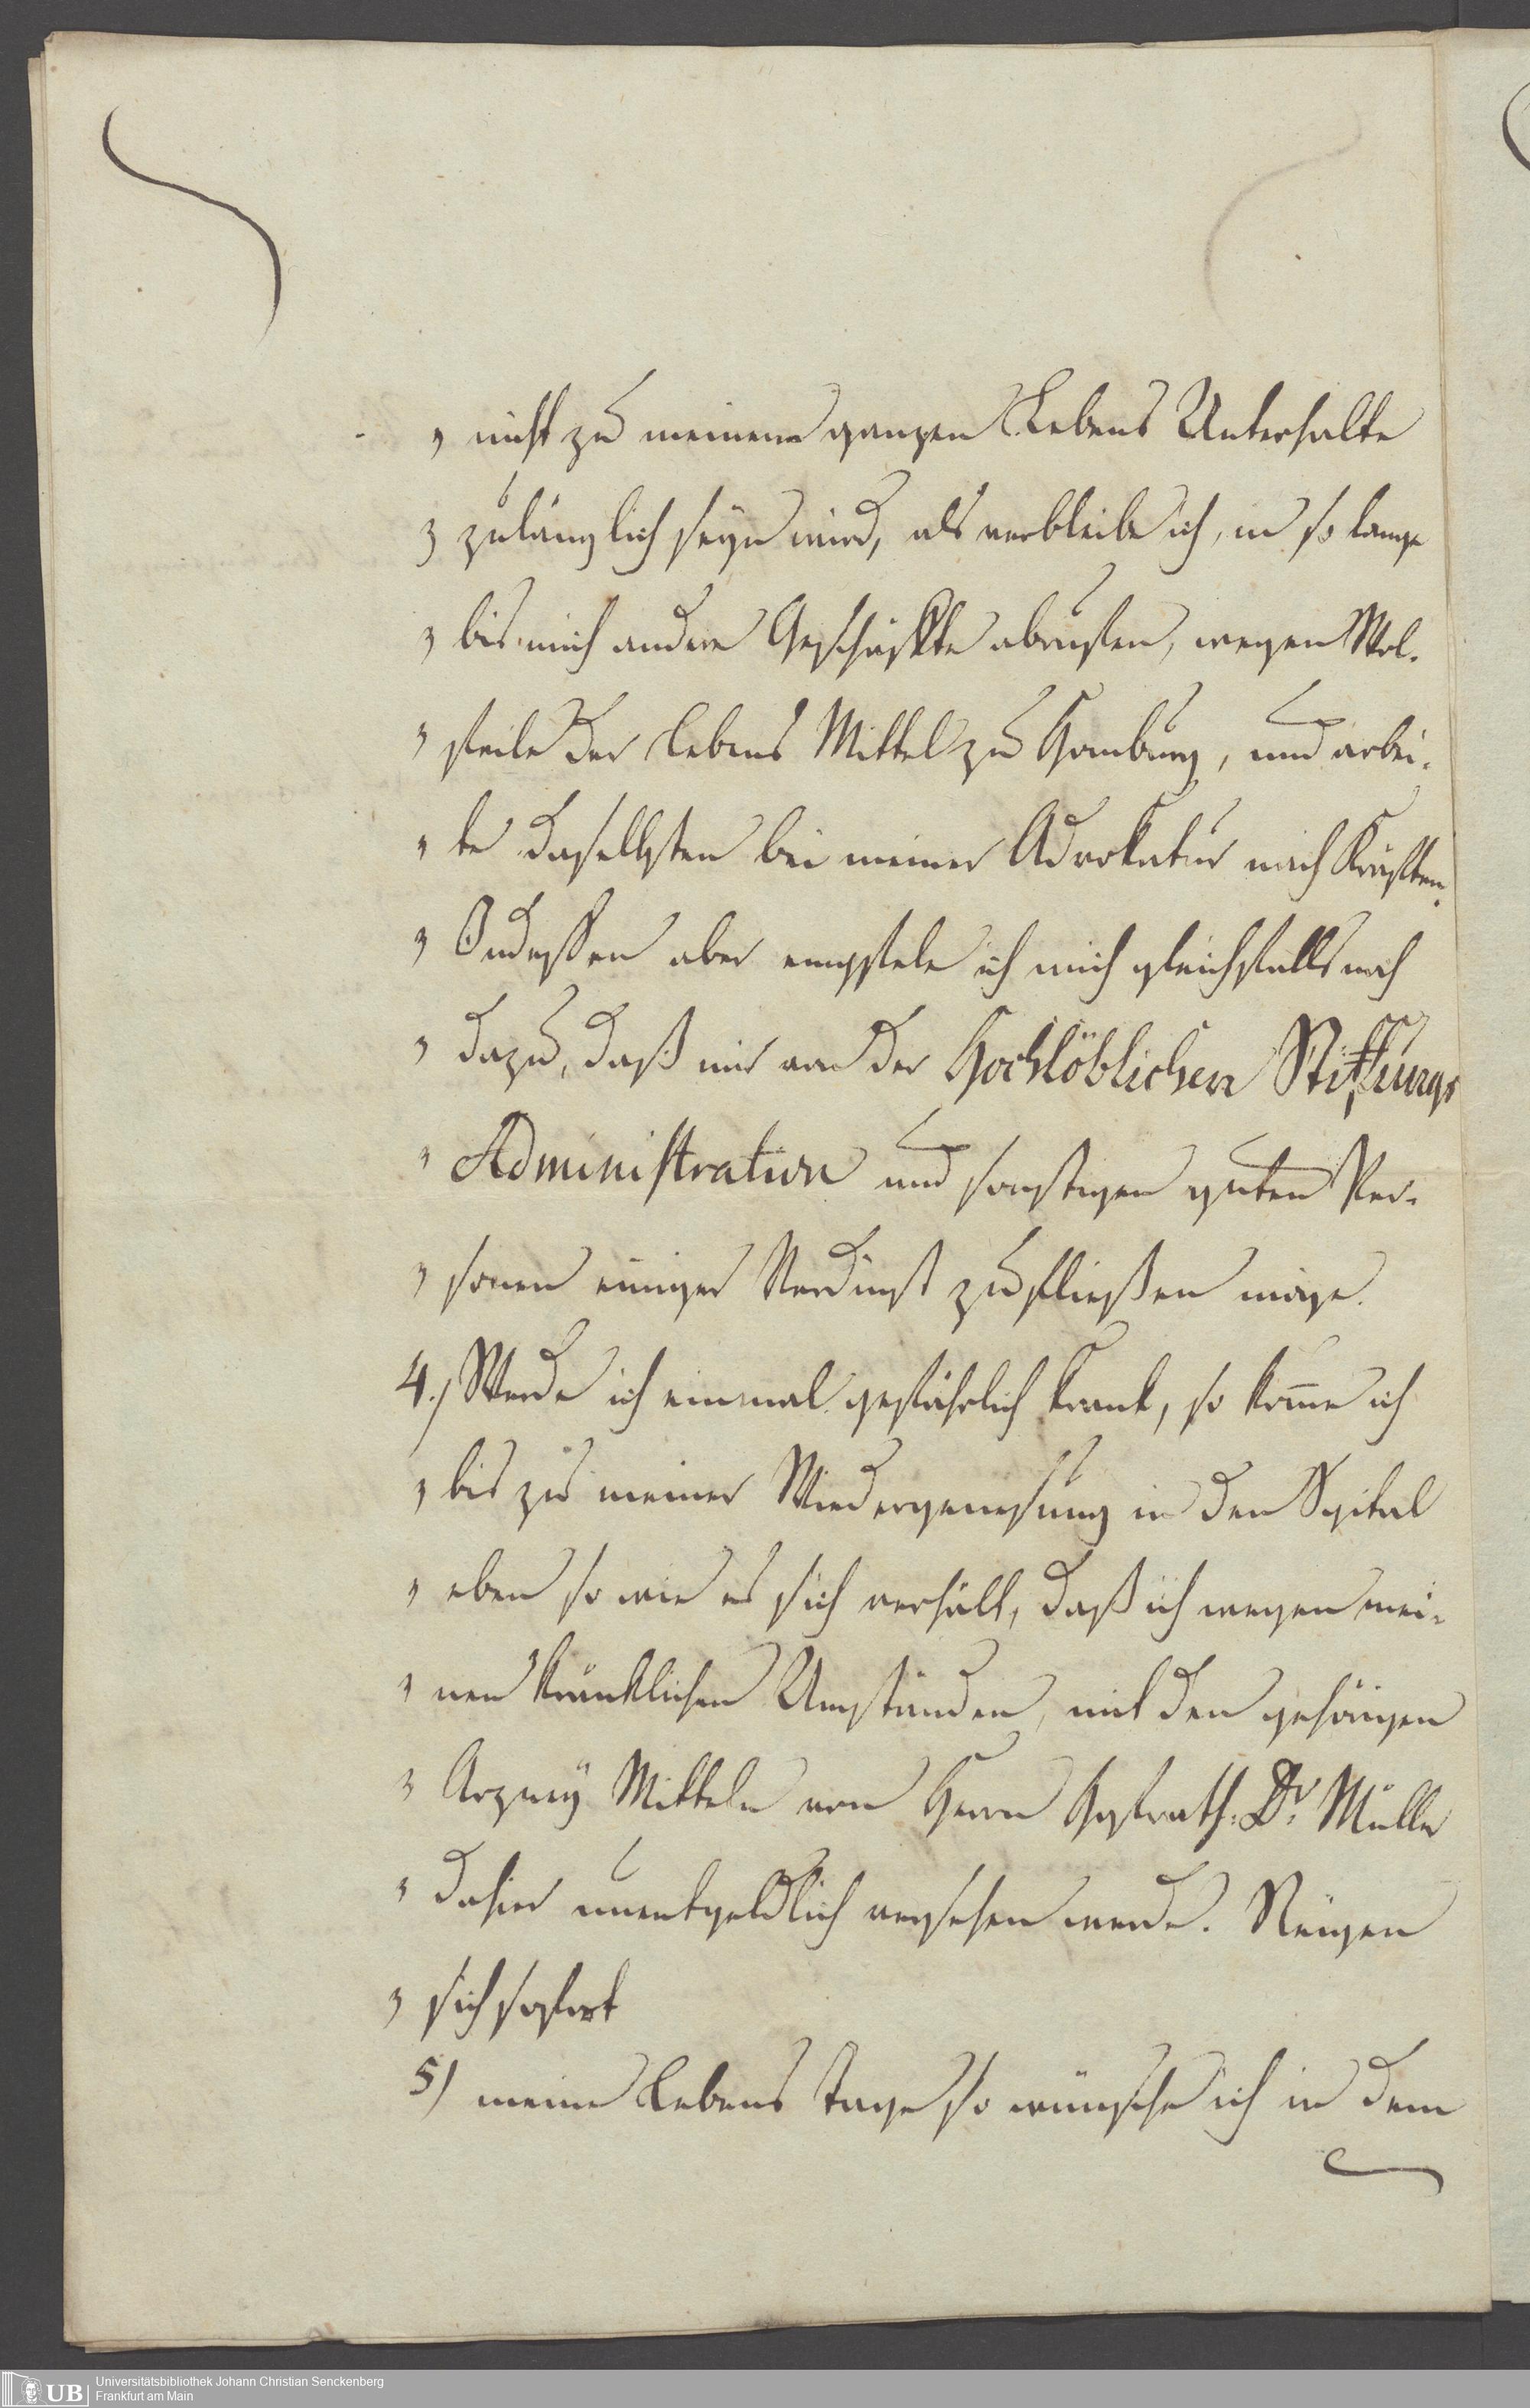 „ nicht zu meinem ganzen Lebens Unterhalte
„ zulänglich seyn wird, als verbleibe ich, in so lange
„ bis mich andere Geschäffte abrufen, wegen Wol-
„ feile der Lebens Mittel zu Homburg, und arbei-
„ te daselbsten bei meiner Advokatur nach Kräften.
„ Indessen aber empfele ich mich gleichfalls noch
„ dazu, daß mir von der Hochlöblichen Stiftungs
„ Administration und sonstigen guten Per-
„ sonen einiger Verdinst zufließen möge.
4.) Werde ich einmal gefährlich krank, so kom̄e ich
„ bis zu meiner Wiedergenesung in den Spital
„ eben so wie es sich verhält, daß ich wegen mei-
„ nen kränklichen Umständen, mit den gehörigen
„ Arzney Mitteln von Herrn Hofrath Dr. Müller
„ dahier unentgeldlich versehen werde. Neigen
„ sich sofort
5) meine Lebens Tage so wünsche ich in dem
Universitätsbibliothek Johann Christian Senckenberg
Frankfurt am Main
UB